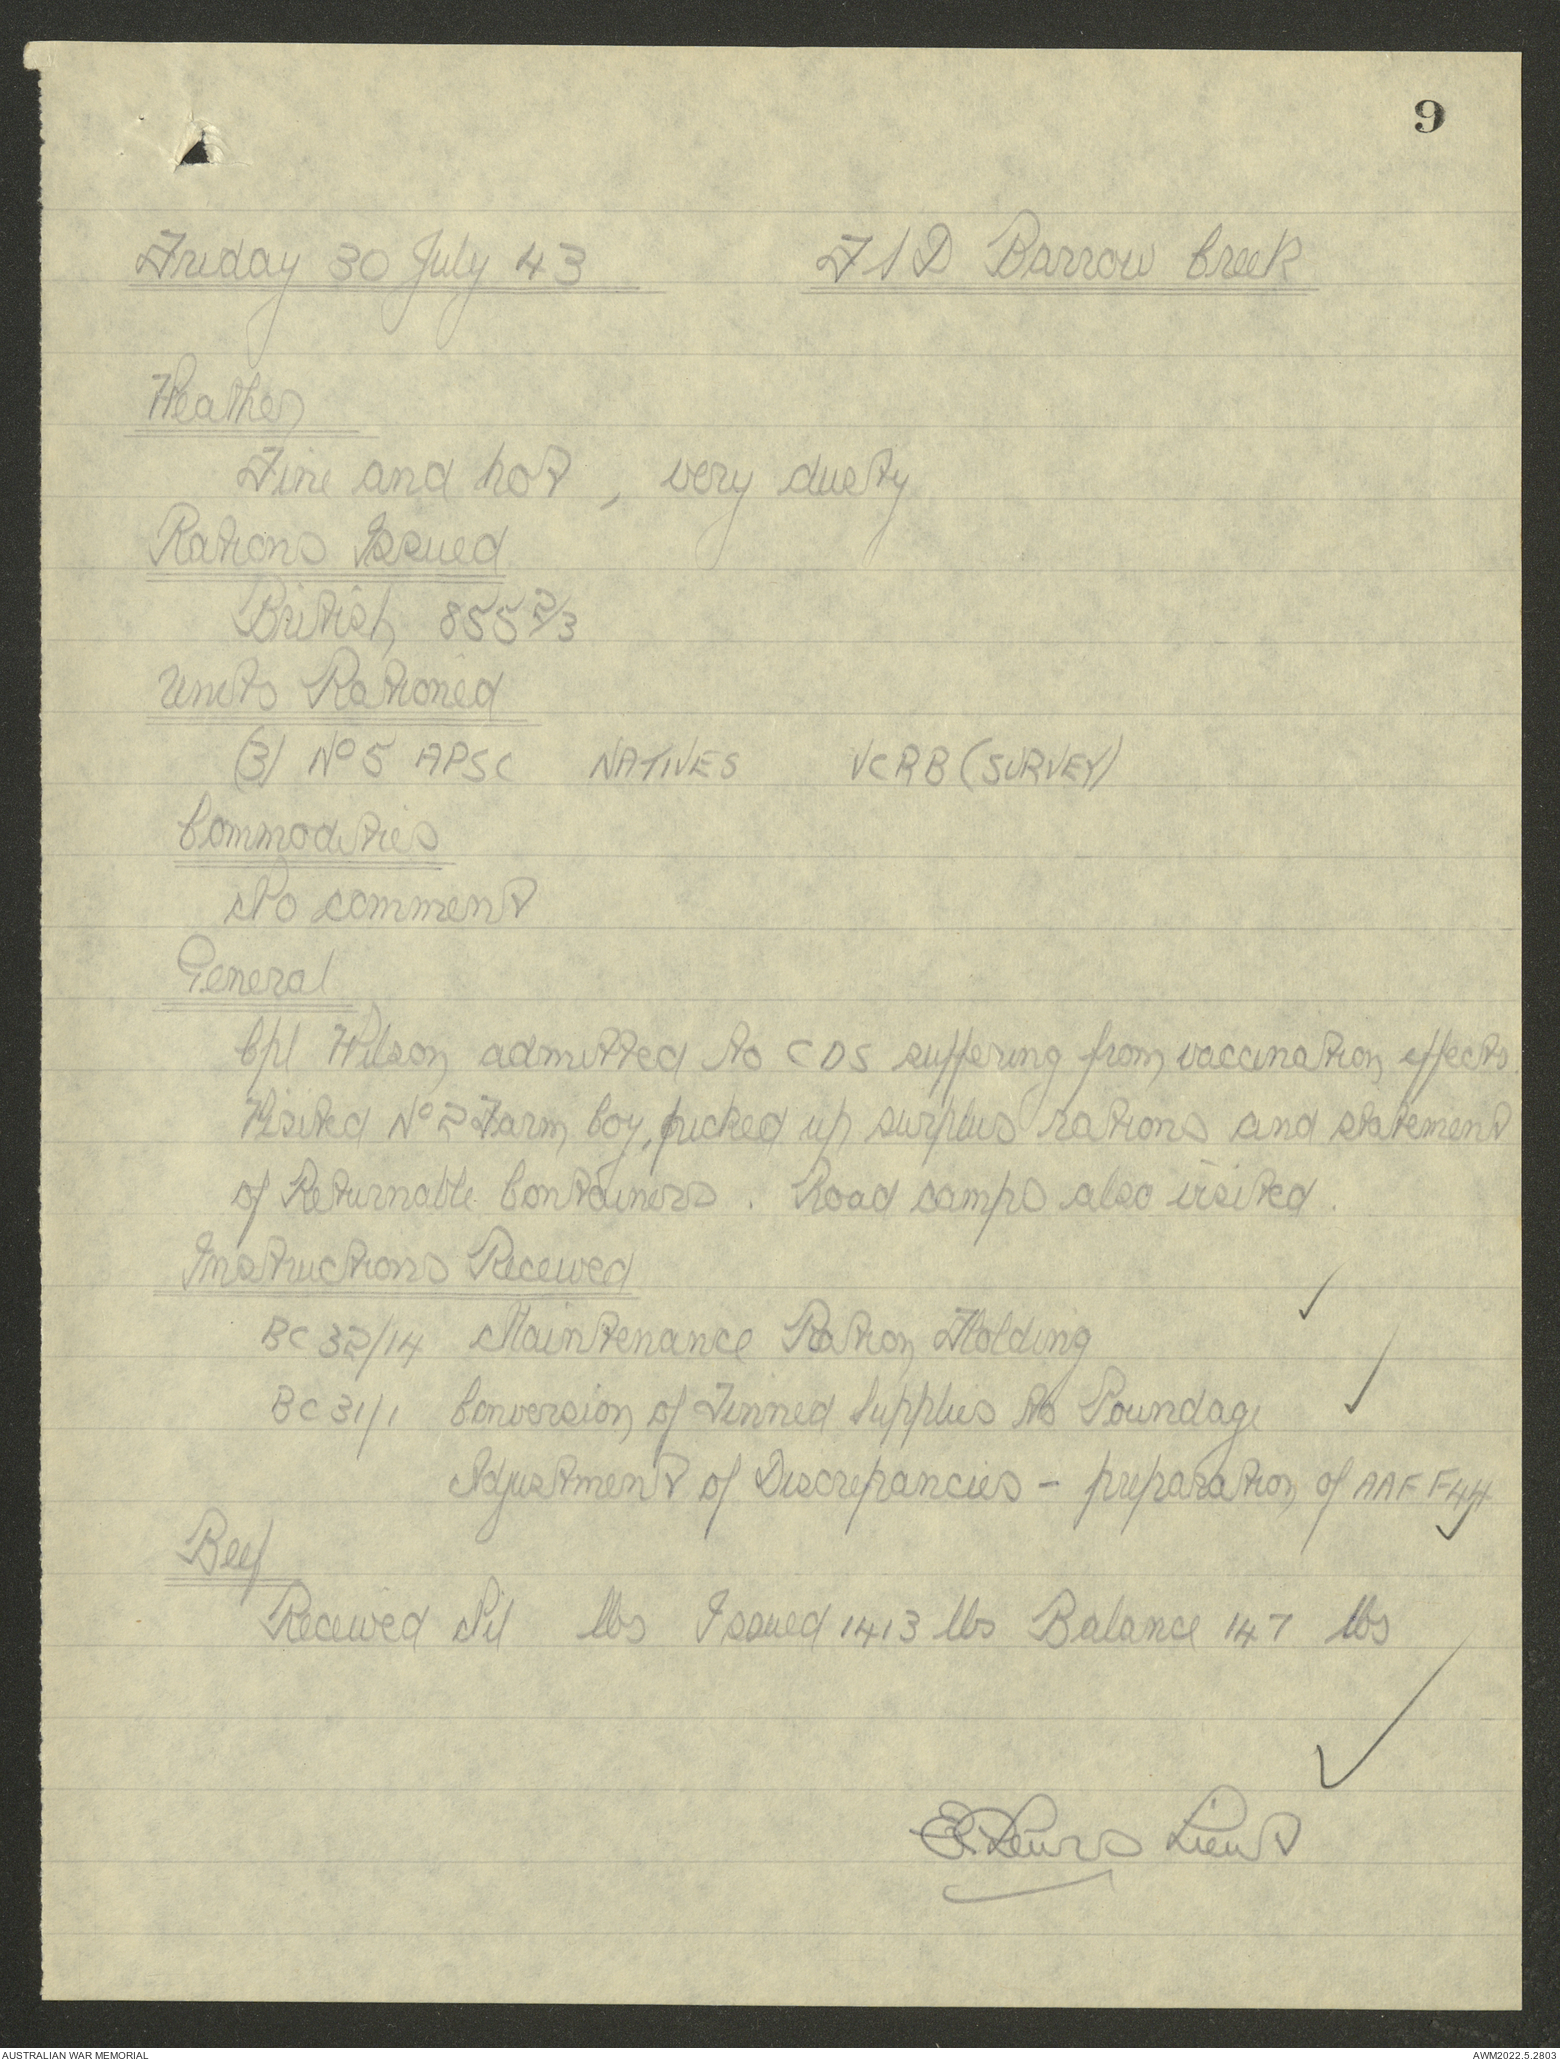 9
Friday 30 July 43 FSD Barrow Creek
Weather
Fine and hot, very dusty
Rations Issued
British 855 2/3
Units Rationed
(3) No 5 APSC NATIVES VCRB (SURVEY)
Commodities
No comment
General
Cpl Wilson admitted to CDS suffering from vaccination effects.
Visited No 2 Farm Coy, picked up surplus rations and statement
of Returnable Containers. Road camps also visited.
Instructions Received
BC 32/14 Maintenance Ration Holding
BC 31/1 Conversion of Tinned Supplies to Poundage
Adjustment of Discrepancies - preparation of AAF F44
Beef
Received Nil lbs Issued 1413 lbs Balance 147 lbs
Lieut
AUSTRALIAN WAR MEMORIAL AWM2022.5.2803